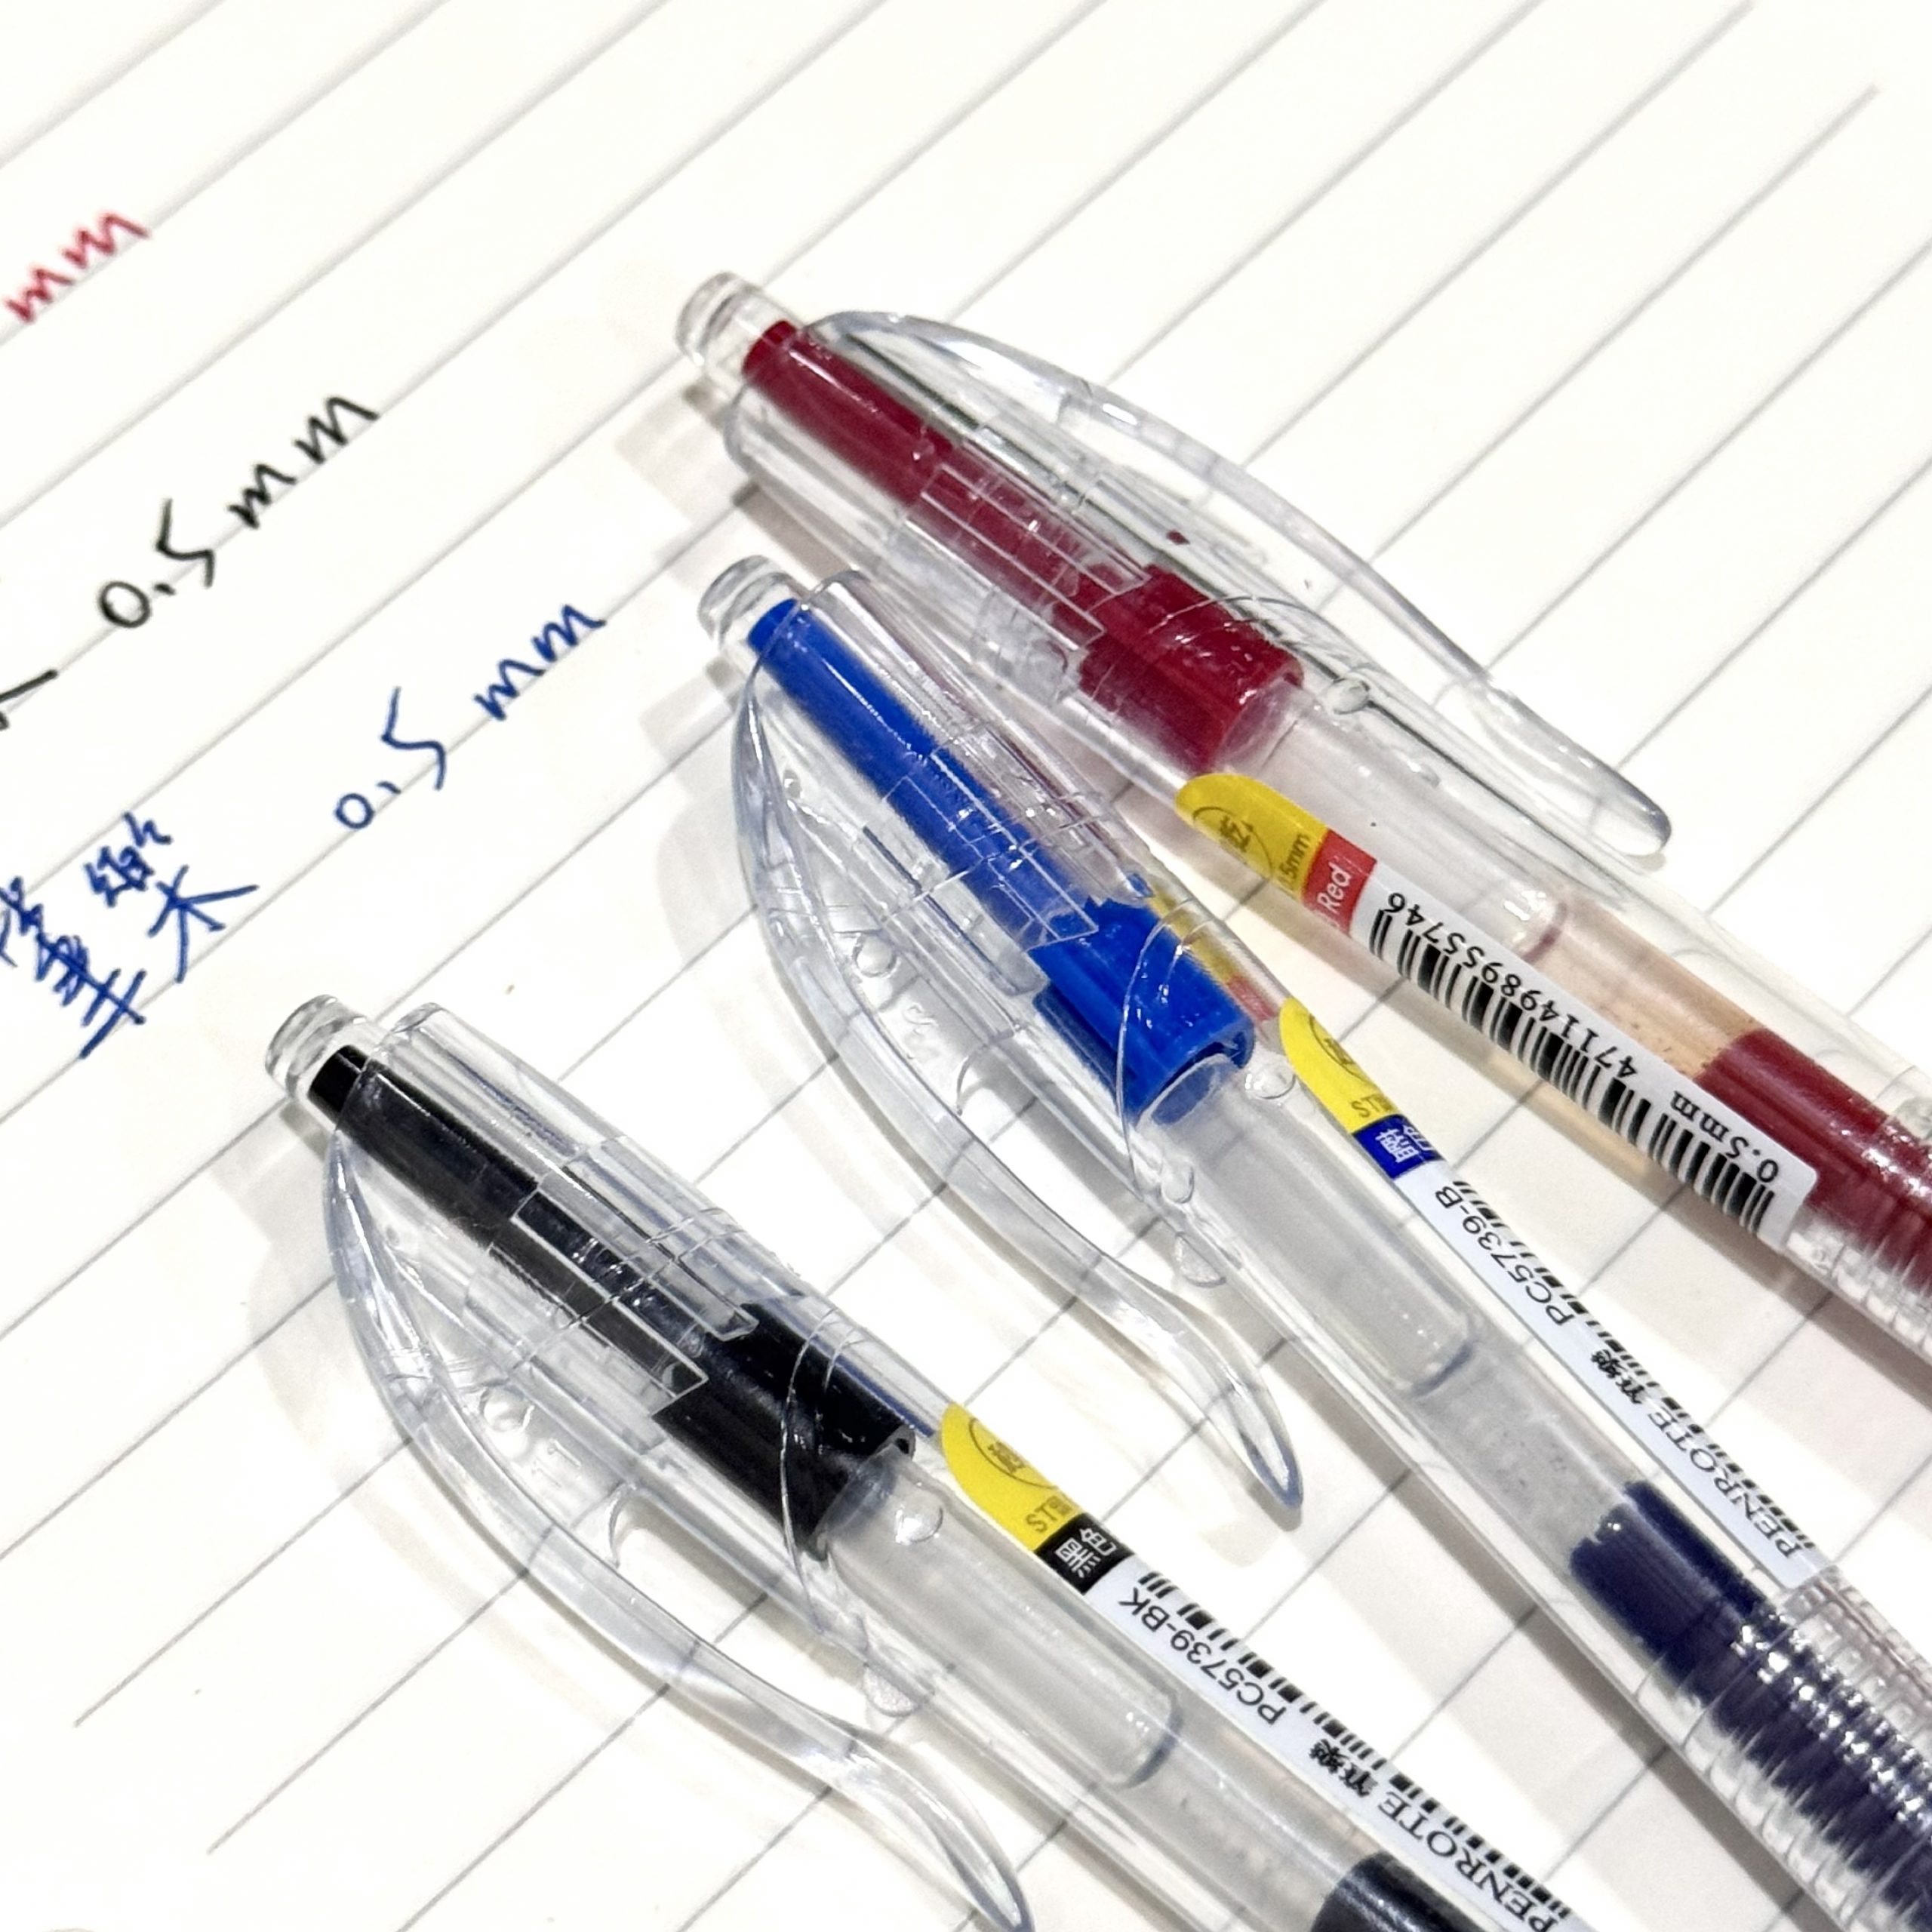 mm
0.5 mm
0.5 mm
筆樂
5mm
Red
4711498955746
0.5mm
PC5739-B
PENROTE 筆樂
黑色
PC5739-BK
PENROTE 筆樂